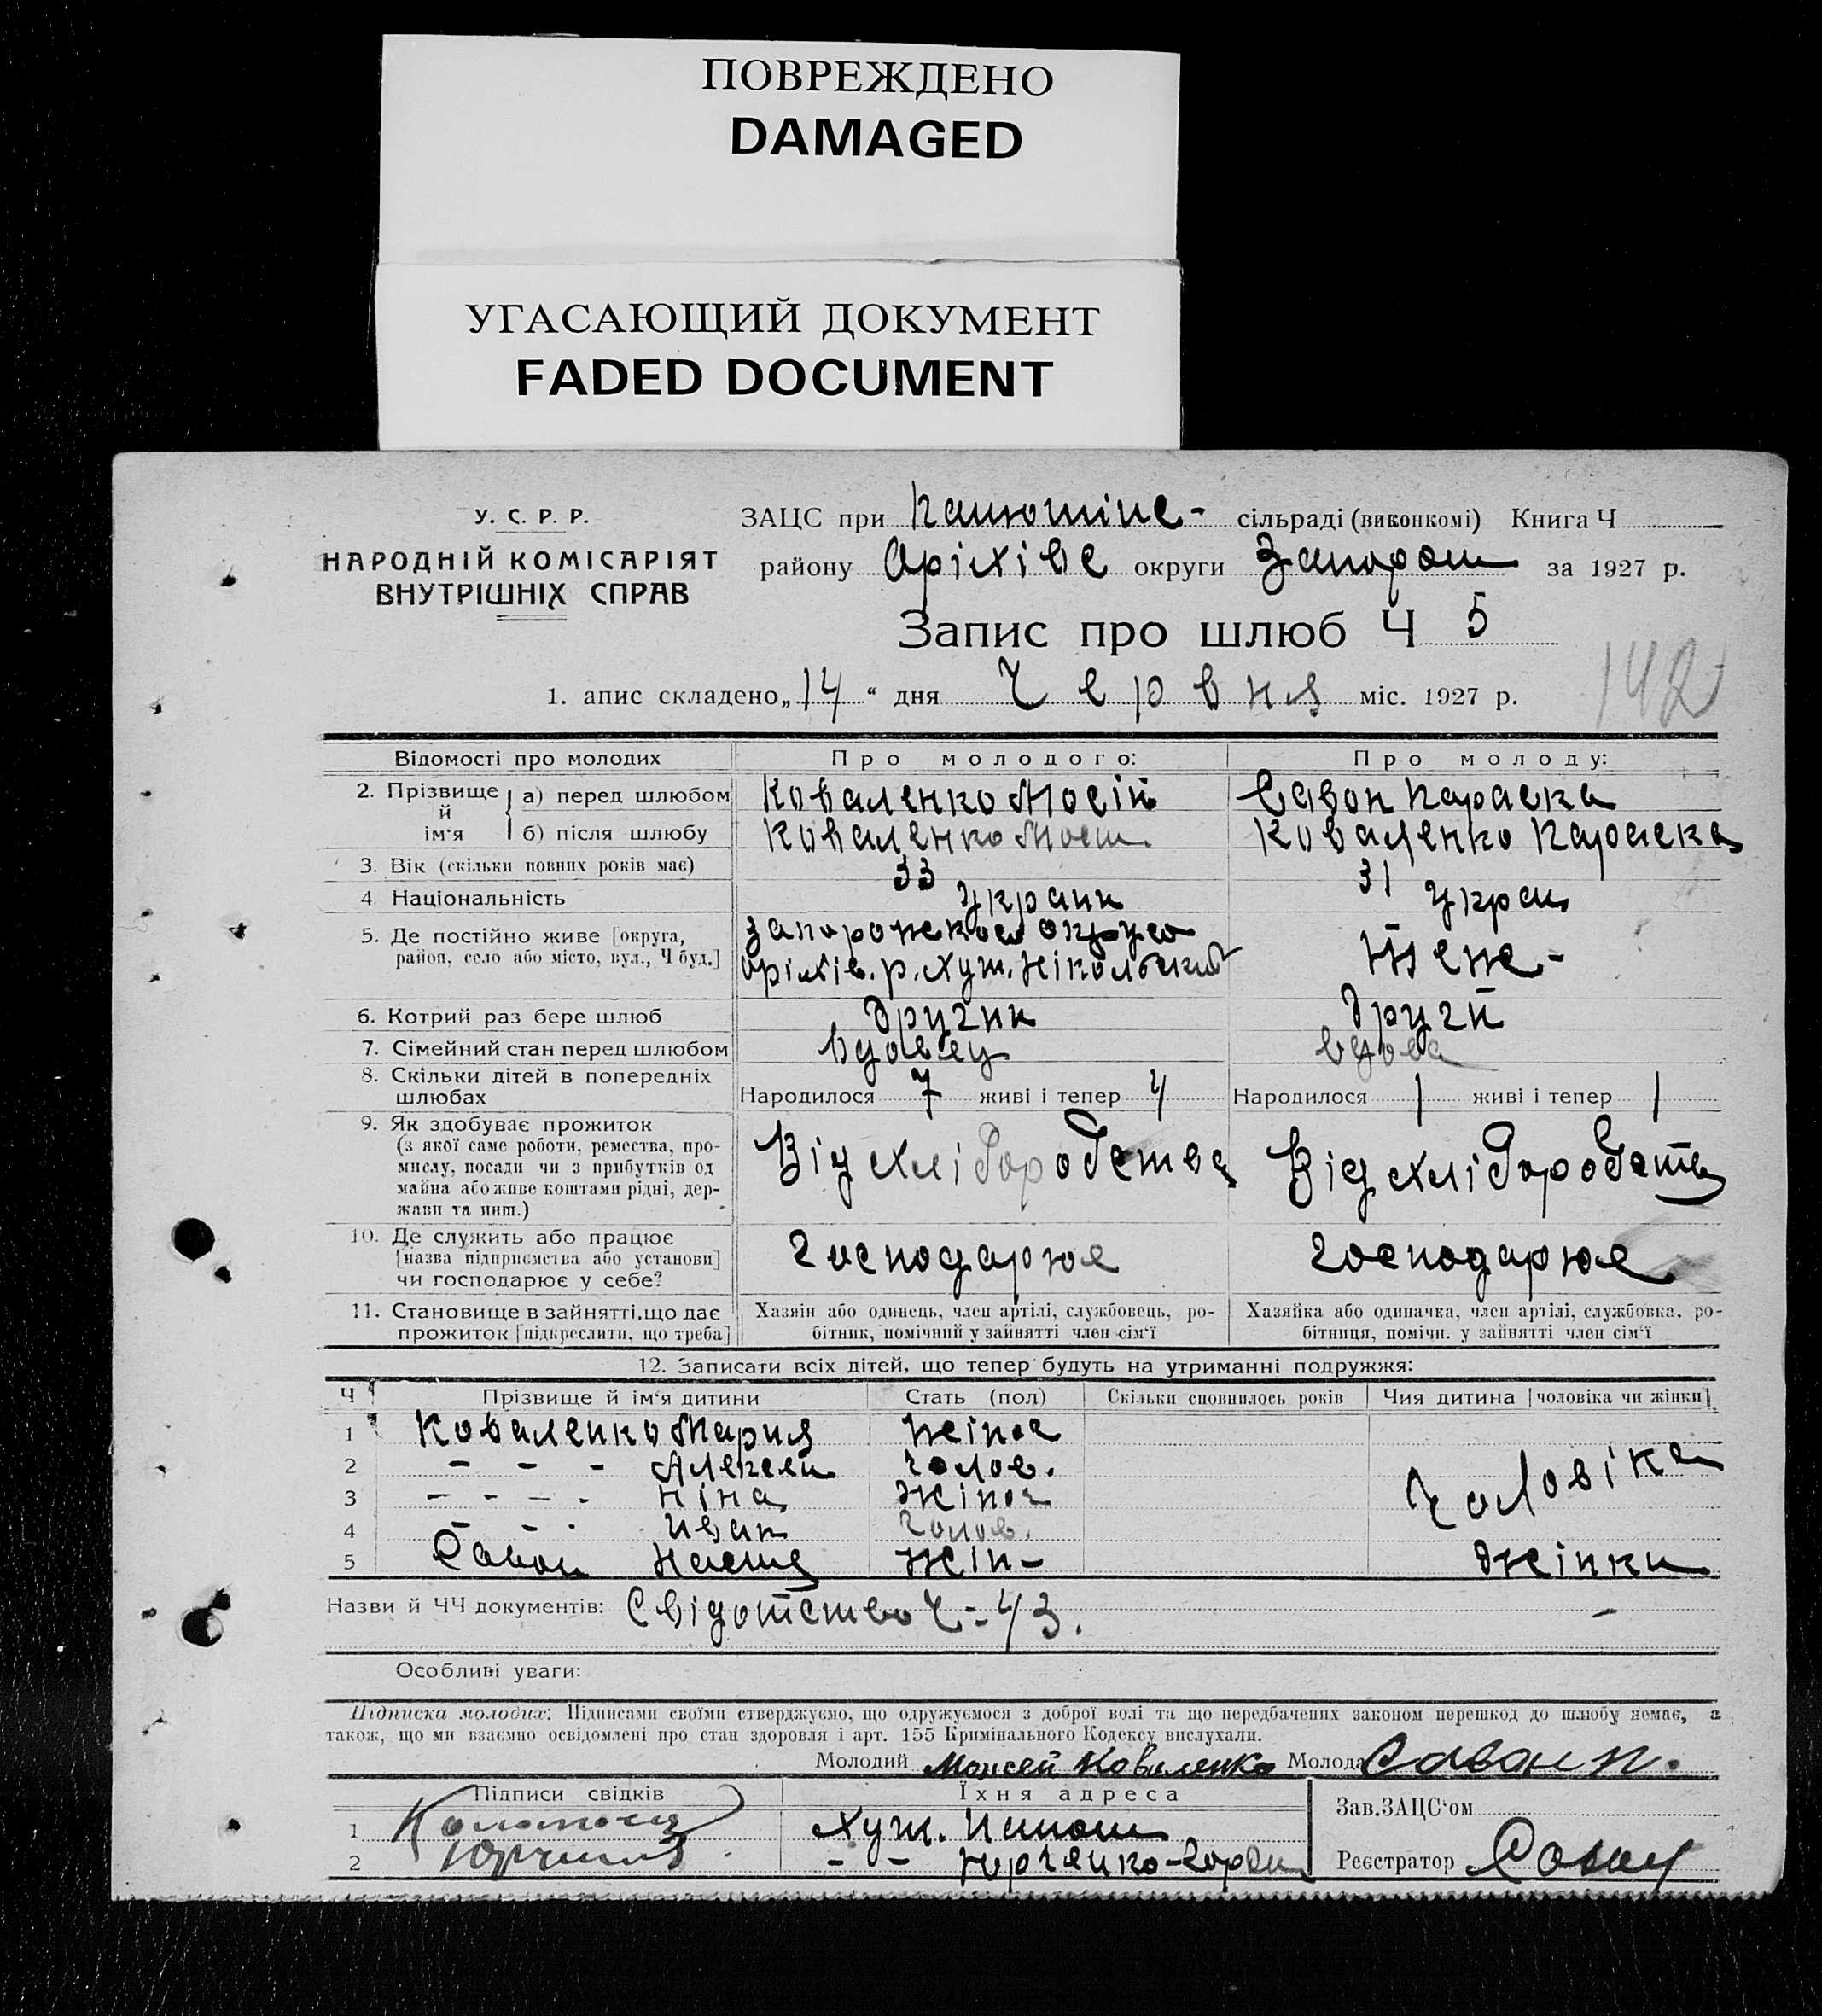 ПОВРЕЖДЕНО
DAMAGED
УГАСАЮЩИЙ ДОКУМЕНТ
FADED DOCUMENT
У. С. Р. Р.
НАРОДНІЙ КОМІСАРІЯТ
ВНУТРІШНІХ СПРАВ
ЗАЦС при сільраді (виконкомі) Книга Ч
району Оріхівс округи Запорож за 1927 р.
Запис про шлюб Ч 5
142
1. апис складено „14“ дня Червня міс. 1927 р.
Відомості про молодих Про молодого: Про молоду:
2. Прізвище й ім'я а) перед шлюбом Коваленко Мосій Савон Параска
б) після шлюбу Коваленко Мосій Коваленко Параска
3. Вік (скільки повних років має) 33 31
4. Національність Украин Украи
5. Де постійно живе [округа, район, село або місто, вул., Ч буд.] Запорожской округо Теже-
оріхів. р. Хут. Нікольский
6. Котрий раз бере шлюб другий другй
7. Сімейний стан перед шлюбом Вдовец вдова
8. Скільки дітей в попередніх шлюбах Народилося 7 живі і тепер 4 Народилося 1 живі і тепер 1
9. Як здобуває прожиток
(з якої саме роботи, ремества, про-
мислу, посади чи з прибутків од
майна або живе коштами рідні, дер-
жави та инш.)
Від хліборобства Від хліборобств
10. Де служить або працює
[назва підприємства або установи]
чи господарює у себе?
Господарює Господарює
11. Становище в зайнятті, що дає
прожиток [підкреслити, що треба]
Хазяїн або одинець, член артілі, службовець, ро-
бітник, помічний у зайнятті член сім'ї
Хазяйка або одиначка, член артілі, службовка, ро-
бітниця, помічн. у зайнятті член сім'ї
12. Записати всіх дітей, що тепер будуть на утриманні подружжя:
Ч Прізвище й ім'я дитини Стать (пол) Скільки сповнилось років Чия дитина [чоловіка чи жінки]
1 Коваленко Мария жіноч
2 - - - Алексей чолов. Чоловіка
3 - - - - Ніна жіноч
4 - - - Иван чолов.
5 Савон Настя жін- Жінки
Назви й ЧЧ документів: Свідотство Ч-43. -
Особливі уваги:
Підписка молодих: Підписами своїми стверджуємо, що одружуємося з доброї волі та що передбачених законом перешкод до шлюбу немає, а
також, що ми взаємно освідомлені про стан здоровля і арт. 155 Кримінального Кодексу вислухали.
Молодий Моисей Коваленко Молода Савон П.
Підписи свідків Їхня адреса Зав.ЗАЦС'ом
1 Хут.
2 - - Реєстратор